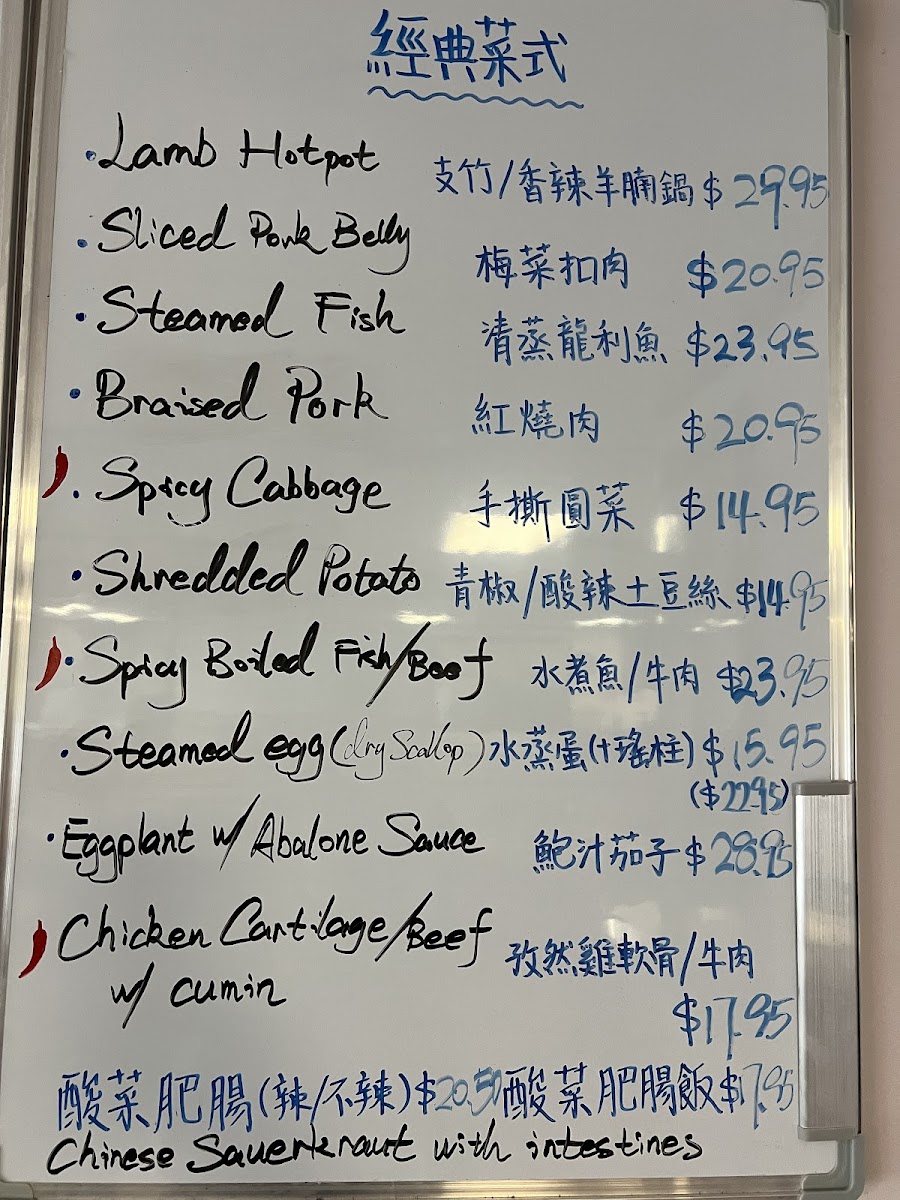 經典菜式
·Lamb Hotpot 支竹/香辣羊腩鍋 $29.95
·Sliced Pork Belly 梅菜扣肉 $20.95
·Steamed Fish 清蒸龍利魚 $23.95
·Braised Pork 紅燒肉 $20.95
·Spicy Cabbage 手撕圓菜 $14.95
·Shredded Potato 青椒/酸辣土豆絲 $14.95
·Spicy Boiled Fish/Beef 水煮魚/牛肉 $23.95
·Steamed egg (dry Scallop) 水蒸蛋(+瑤柱) $15.95
($22.95)
·Eggplant w/ Abalone Sauce 鮑汁茄子 $28.95
Chicken Cartilage/Beef
w/ cumin 孜然雞軟骨/牛肉
$17.95
酸菜肥腸(辣/不辣) $20.50 酸菜肥腸飯 $17.95
Chinese Sauerkraut with intestines